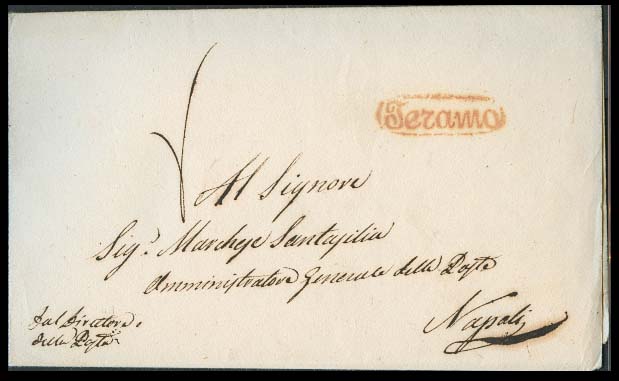 Teramo
Al Signore
Sig.r Marchese Santasilia
Amministratore Generale delle Poste
Napoli
Dal Direttore
delle Poste